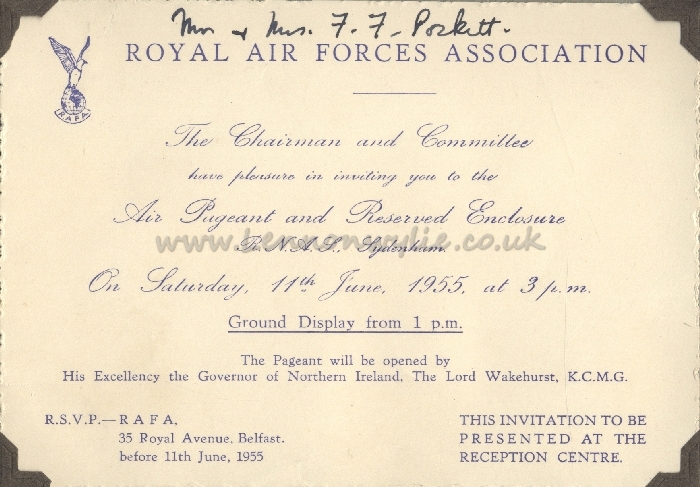 Mr & Mrs. F. F. Pockett.
ROYAL AIR FORCES ASSOCIATION
R.A.F.A.
The Chairman and Committee
have pleasure in inviting you to the
Air Pageant and Reserved Enclosure
R.N.A.S. Sydenham
www.bennonwylie.co.uk
On Saturday, 11th June, 1955, at 3 p.m.
Ground Display from 1 p.m.
The Pageant will be opened by
His Excellency the Governor of Northern Ireland, The Lord Wakehurst, K.C.M.G.
R.S.V.P.—RAFA,
35 Royal Avenue, Belfast.
before 11th June, 1955
THIS INVITATION TO BE
PRESENTED AT THE
RECEPTION CENTRE.